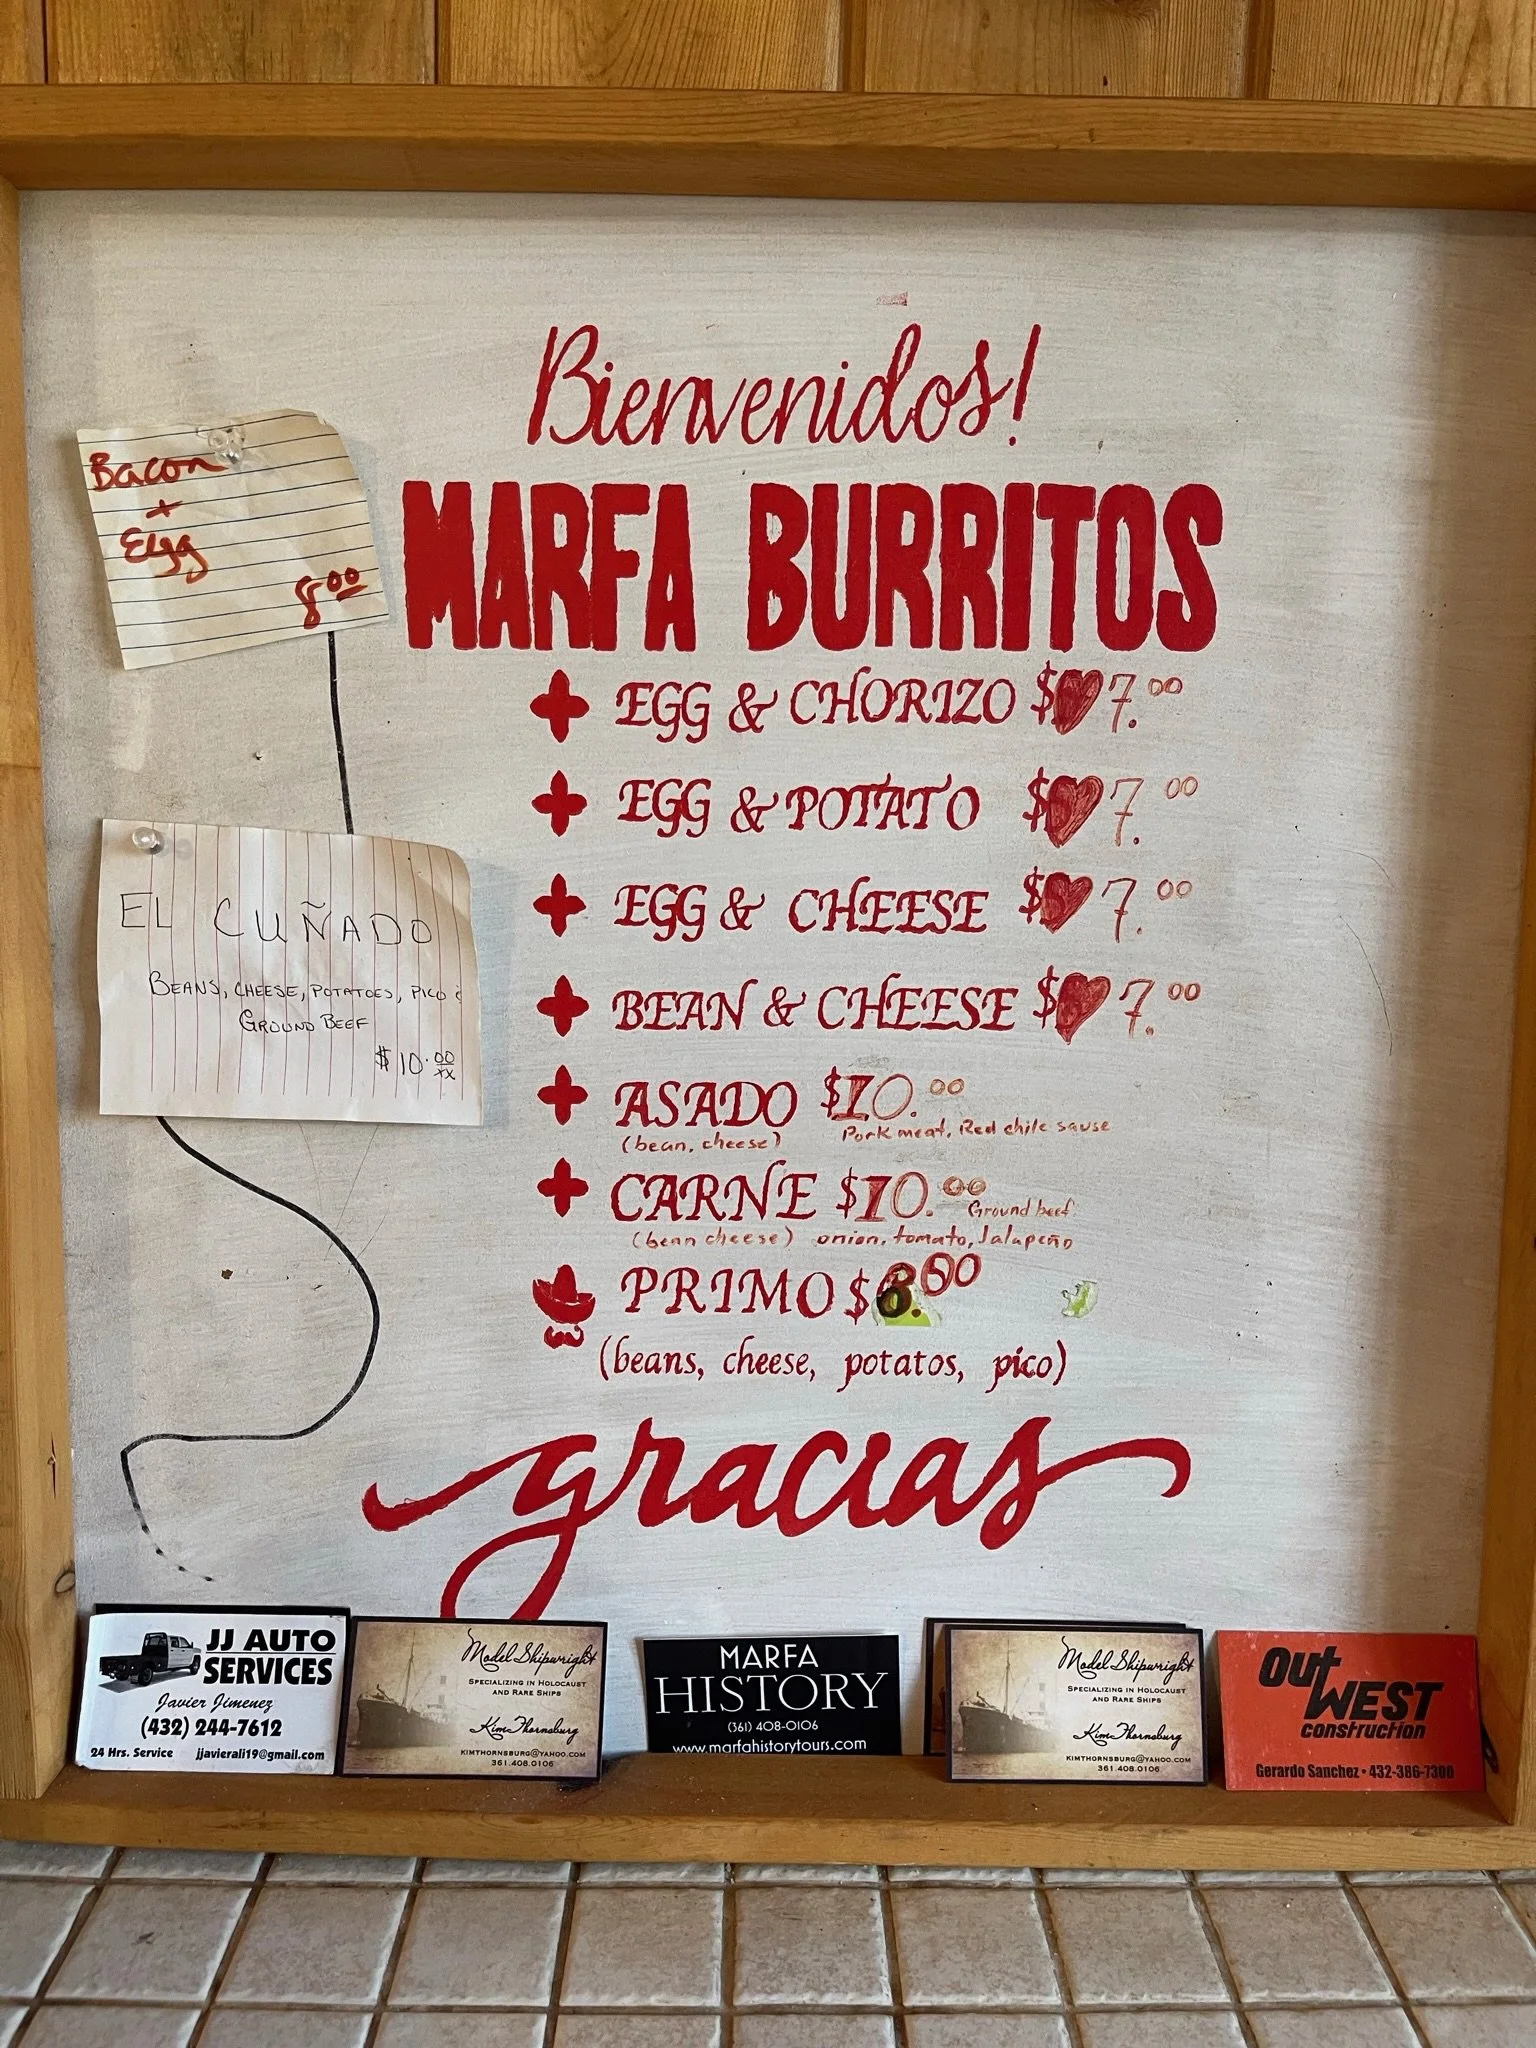 Bienvenidos!
MARFA BURRITOS
EGG & CHORIZO $ 7.00
EGG & POTATO $ 7.00
EGG & CHEESE $ 7.00
BEAN & CHEESE $ 7.00
ASADO $10.00
(bean, cheese) Pork meat, Red chile sause
CARNE $10.00 Ground beef
(bean cheese) onion, tomato, Jalapeño
PRIMO $8.00
(beans, cheese, potatos, pico)
gracias
Bacon
+
Egg
8.00
EL CUÑADO
BEANS, CHEESE, POTATOES, PICO &
GROUND BEEF
$10.00
xx
JJ AUTO
SERVICES
Javier Jimenez
(432) 244-7612
24 Hrs. Service jjavierali19@gmail.com
Model Shipwright
SPECIALIZING IN HOLOCAUST
AND RARE SHIPS
Kim Thornsburg
KIMTHORNSBURG@YAHOO.COM
361.408.0106
MARFA
HISTORY
(361) 408-0106
www.marfahistorytours.com
Model Shipwright
SPECIALIZING IN HOLOCAUST
AND RARE SHIPS
Kim Thornsburg
KIMTHORNSBURG@YAHOO.COM
361.408.0106
Out
WEST
construction
Gerardo Sanchez • 432-386-7300